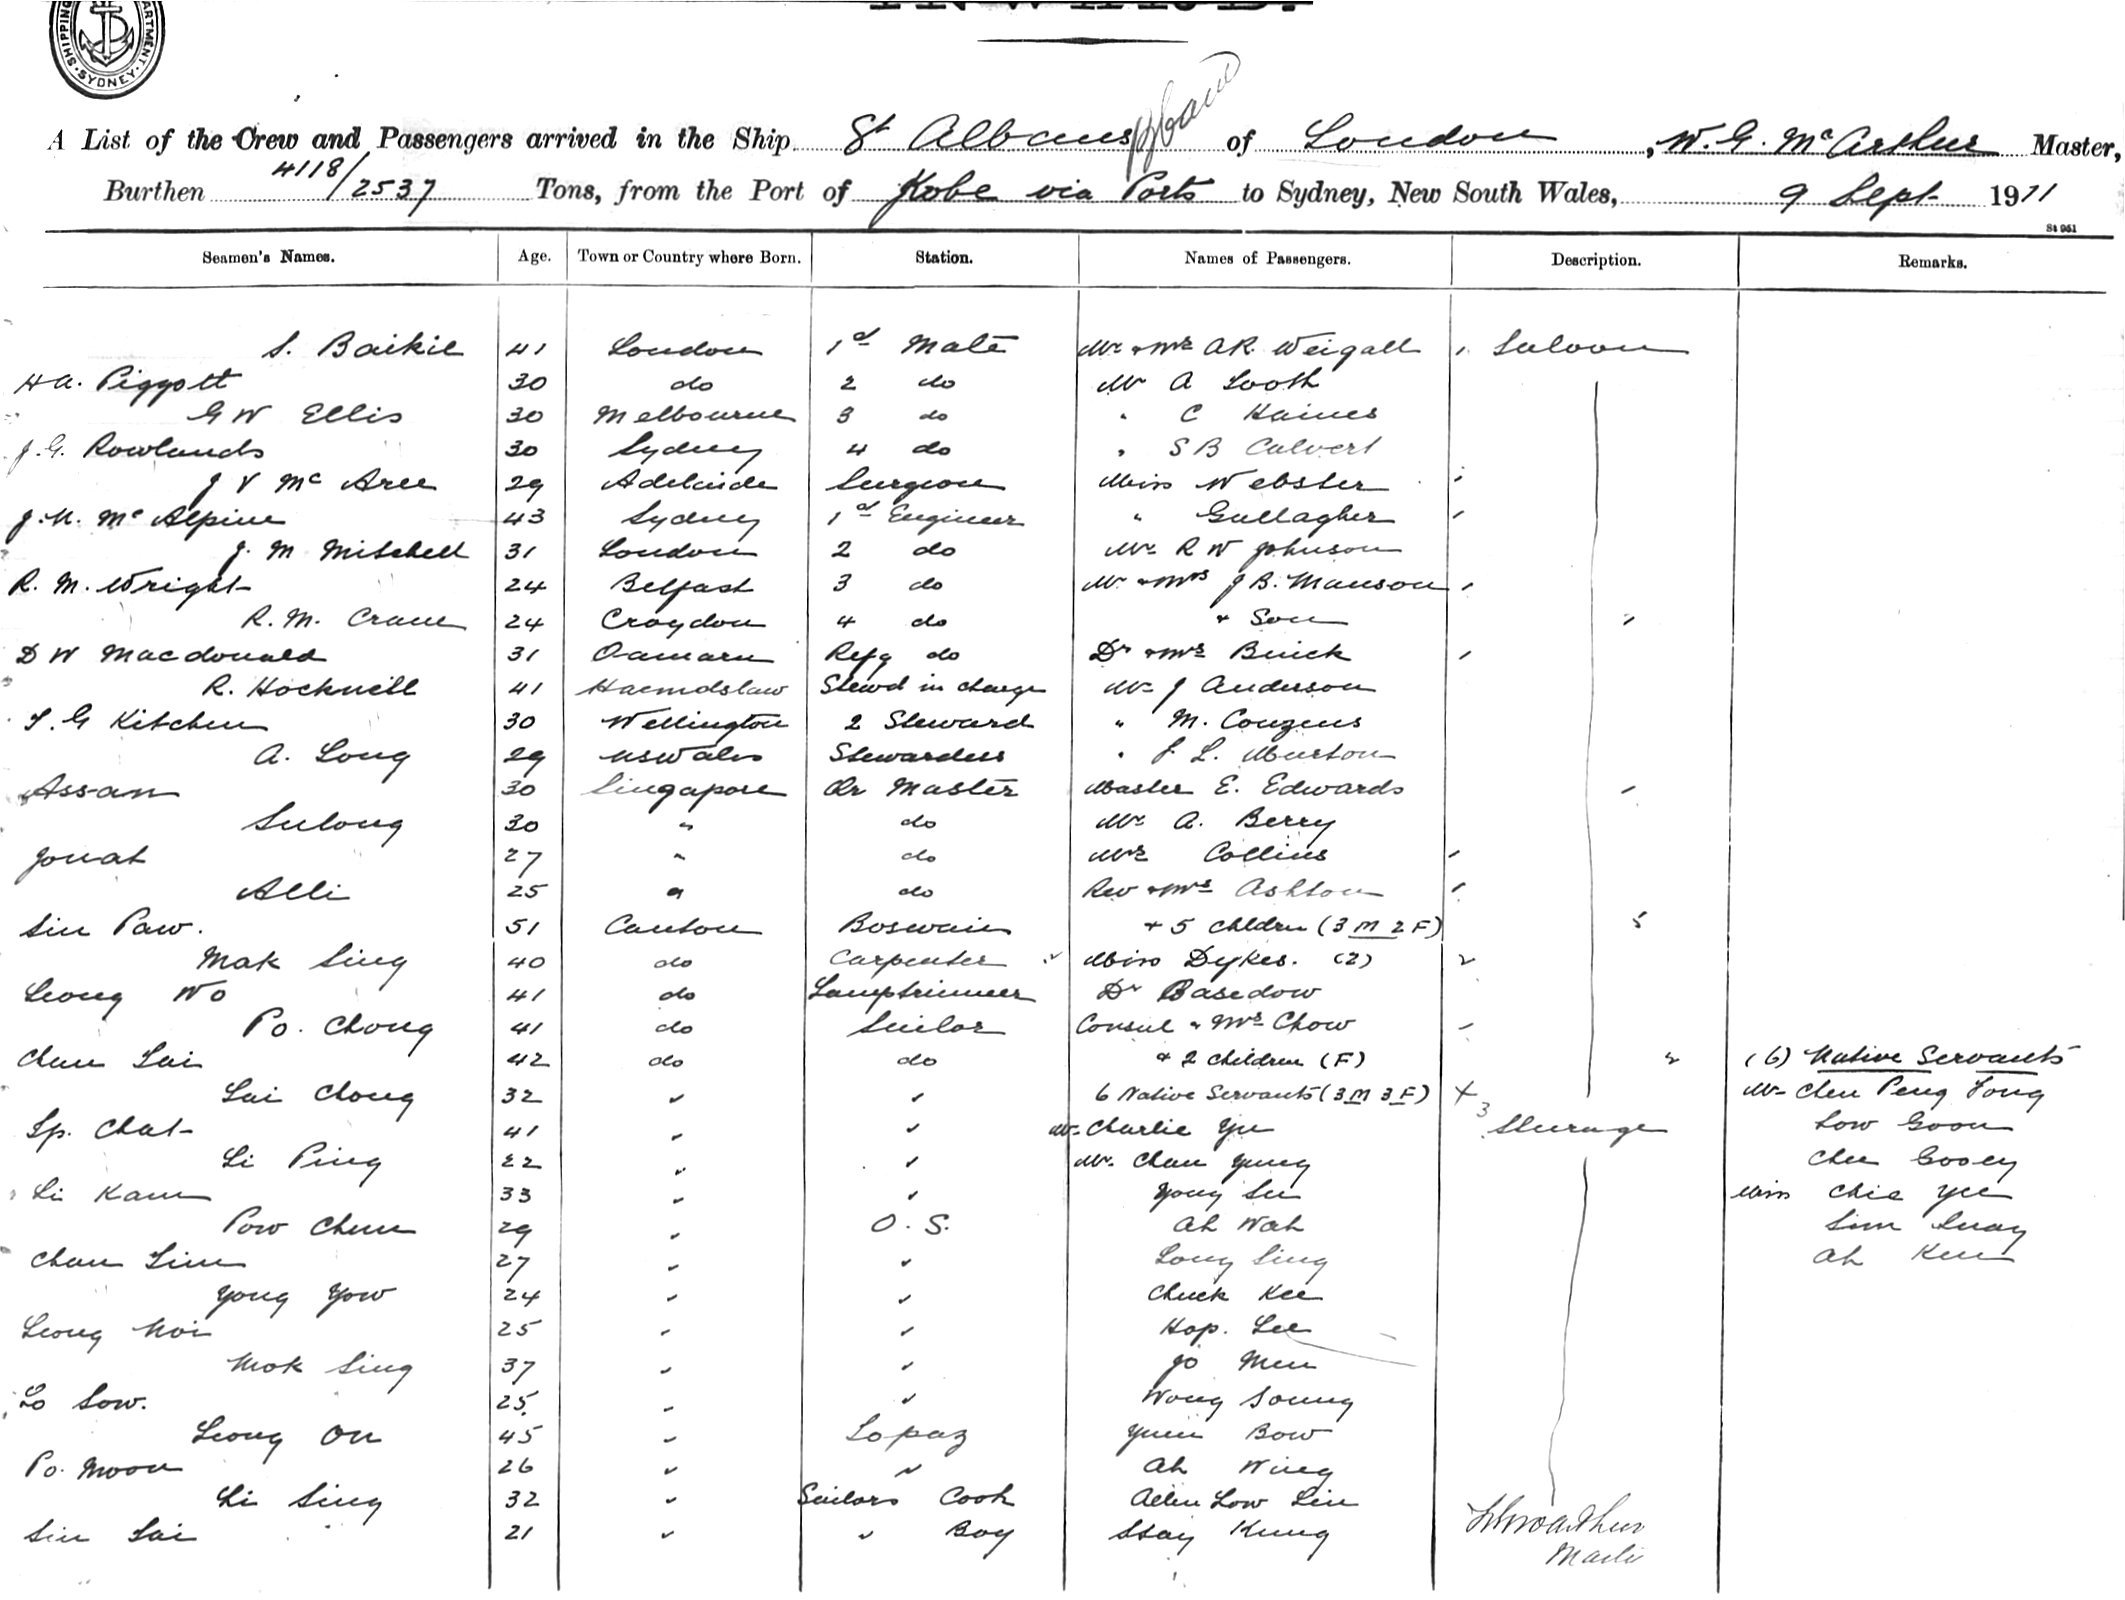 SHIPPING DEPARTMENT SYDNEY
INWARD.
A List of the Crew and Passengers arrived in the Ship St Albans of London, W. G. McArthur Master,
Burthen 4118/2537 Tons, from the Port of Kobe via Ports to Sydney, New South Wales, 9 Sept 1911
St 951
Seamen's Names. Age. Town or Country where Born. Station. Names of Passengers. Description. Remarks.
S. Baikie 41 London 1st Mate Mr & Mrs A R. Weigall Saloon
H a. Piggott 30 do 2 do Mr A Tooth
G W Ellis 30 Melbourne 3 do " C Haines
J. G. Rowlands 30 Sydney 4 do " S B Calvert
J V McAree 29 Adelaide Surgeon Miss Webster
J. M. McAlpine 43 Sydney 1st Engineer " Gallagher
J. M Mitchell 31 London 2 do Mr R W Johnson
R. M. Wright 24 Belfast 3 do Mr & Mrs J B. Manson
R. M. Crane 24 Croydon 4 do & Son
D W Macdonald 31 Oamaru Refg do Dr & Mrs Buick
R. Hocknell 41 Stewd in charge Mr J Anderson
T. G Kitchen 30 Wellington 2 Steward " M. Couzens
A. Long 29 NSWales Stewardess " J. L. Murton
Assan 30 Singapore Qr Master Master E. Edwards
Sulong 30 " do Mr A. Berry
Jonat 27 " do Mrs Collins
Alli 25 " do Rev & Mrs Ashton
Sin Paw. 51 Canton Boswain + 5 Chldren (3 M 2 F) 5
Mak Sing 40 do Carpenter Miss Dykes. (2) 2
Leong Wo 41 do Lamptrimmer Dr Basedow
Po. Chong 41 do Sailor Consul & Mrs Chow
Chan Sai 42 do do & 2 Children (F) 2 (6) Native Servants
Lai Chong 32 " " 6 Native Servants (3 M 3 F) + 3 Mr Chen Peng Fong
Sp. Chat 41 " " Mr Charlie Yee Steerage Low Goon
Li Ping 22 " " Mr. Chan Yung Chee Gooey
Li Kam 33 " " Yong See Miss Chie Yee
Pow Chun 29 " O. S. Ah Wah Sim Quay
Chan Sim 27 " " Long Sing Ah Kum
Yong Yow 24 " " Chuck Kee
Leong Moi 25 " " Hop. Lee
Mok Sing 37 " " Jo Mun
Lo Sow. 25. " " Wong Soung
Leong On 45 " Lopaz Yuen Bow
Po. Moon 26 " " Ah Wing
Li Sing 32 " Sailors Cook Allen Low Lin
Sin Sai 21 " " Boy Stay Kung
W G McArthur
Master